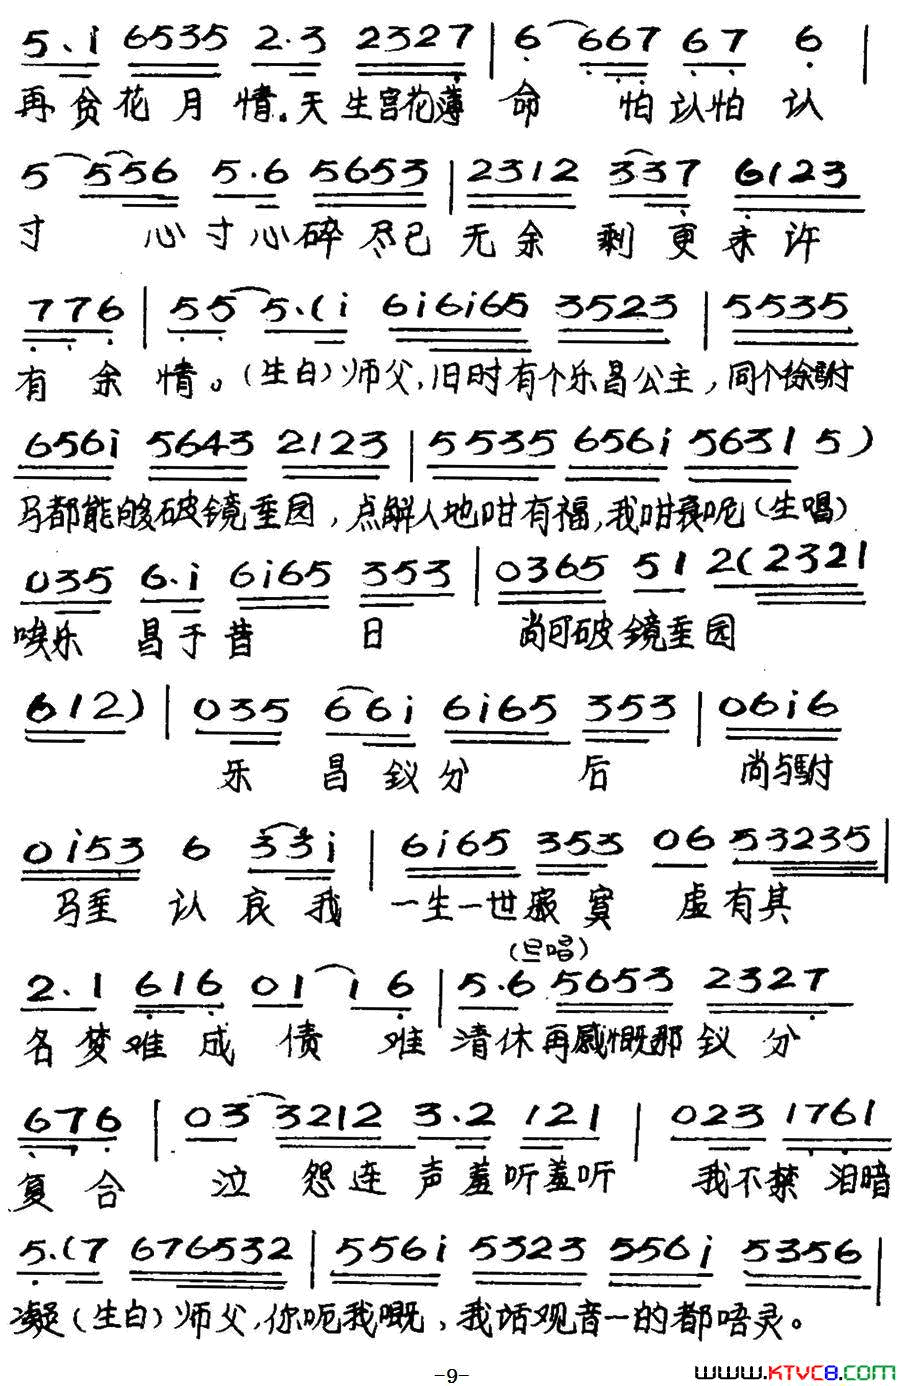 5.i 6535 2.3 2327 | 6 667 67 6 |
再贪花月情。天生宫花薄命 怕认怕认
5 556 5.6 5653 | 2312 337 6123
寸 心寸心碎尽已无余剩更未许
776 | 55 5.(i 6i6i65 3523 | 5535
有余情。(生白)师父,旧时有个乐昌公主,同个徐驸
656i 5643 2123 | 5535 656i 5631 5)
马都能够破镜重园,点解人地咁有福,我咁衰呢(生唱)
035 6.i 6i65 353 | 0365 51 2(2321
唉乐昌于昔日 尚可破镜重园
612) | 035 66i 6i65 353 | 06i6
乐昌钗分后 尚与驸
0i53 6 33i | 6i65 353 06 53235 |
马重认哀我一生一世寂寞虚有其
(旦唱)
2.1 616 01 1 6 | 5.6 5653 2327
名梦难成债难清休再感慨那钗分
676 | 03 3212 3.2 121 | 023 1761
复合 泣怨连声羞听羞听 我不禁泪暗
5.(7 676532 | 556i 5323 556i 5356 |
凝(生白)师父,你呃我嘅,我话观音一的都唔灵。
-9-
www.KTVC8.com